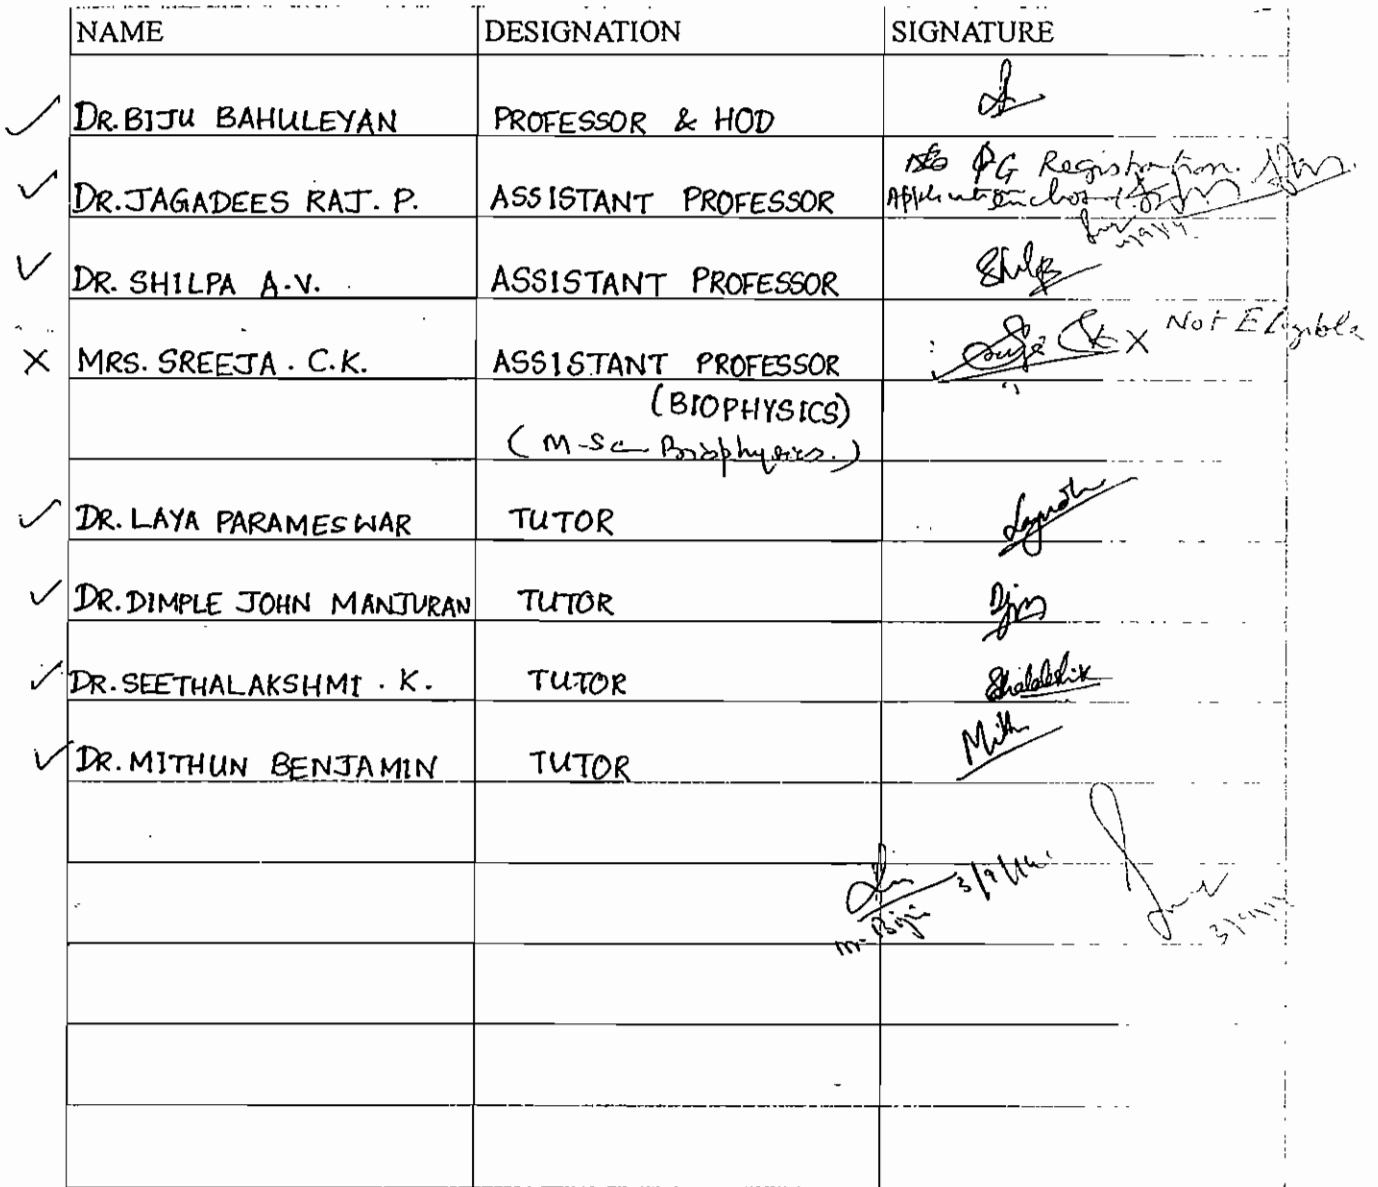 NAME DESIGNATION SIGNATURE
✓ DR. BIJU BAHULEYAN PROFESSOR & HOD
PG Registration
✓ DR. JAGADEES RAJ. P. ASSISTANT PROFESSOR Application
✓ DR. SHILPA A.V. ASSISTANT PROFESSOR Shilpa
X MRS. SREEJA. C.K. ASSISTANT PROFESSOR X Not Eligible
(BIOPHYSICS)
(M-Sc Biophysics.)
✓ DR. LAYA PARAMESWAR TUTOR
✓ DR. DIMPLE JOHN MANJURAN TUTOR
✓ DR. SEETHALAKSHMI. K. TUTOR
✓ DR. MITHUN BENJAMIN TUTOR
3/9/14
3/9/14